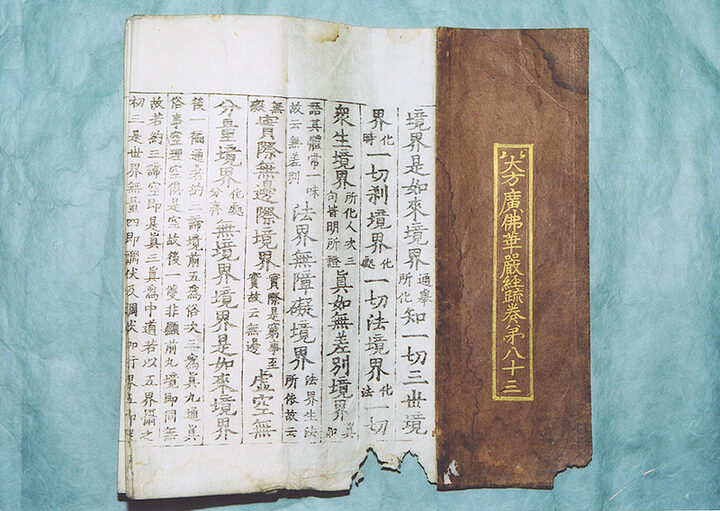 大方廣佛華嚴經疏卷苐八十三
境界是如來境界通擧所化知一切三世境
界化時一切刹境界化處一切法境界化法一切
衆生境界所化人次三句皆明所證眞如無差別境界眞
如語其體常一味故云無差別法界無障礙境界法界生法所依故云
無礙實際無邊際境界實際是窮事至實故云無邊虛空無
分量境界化處分齊無境界境界是如來境界
後一徧通者約二諦境前五爲俗次三爲眞九通眞
俗事空理空俱是空故後一雙非顯前九境即同無
故若約三諦空即是眞三眞爲中道若以五界攝之
初二是世界無量四即調伏及調伏加行界五即